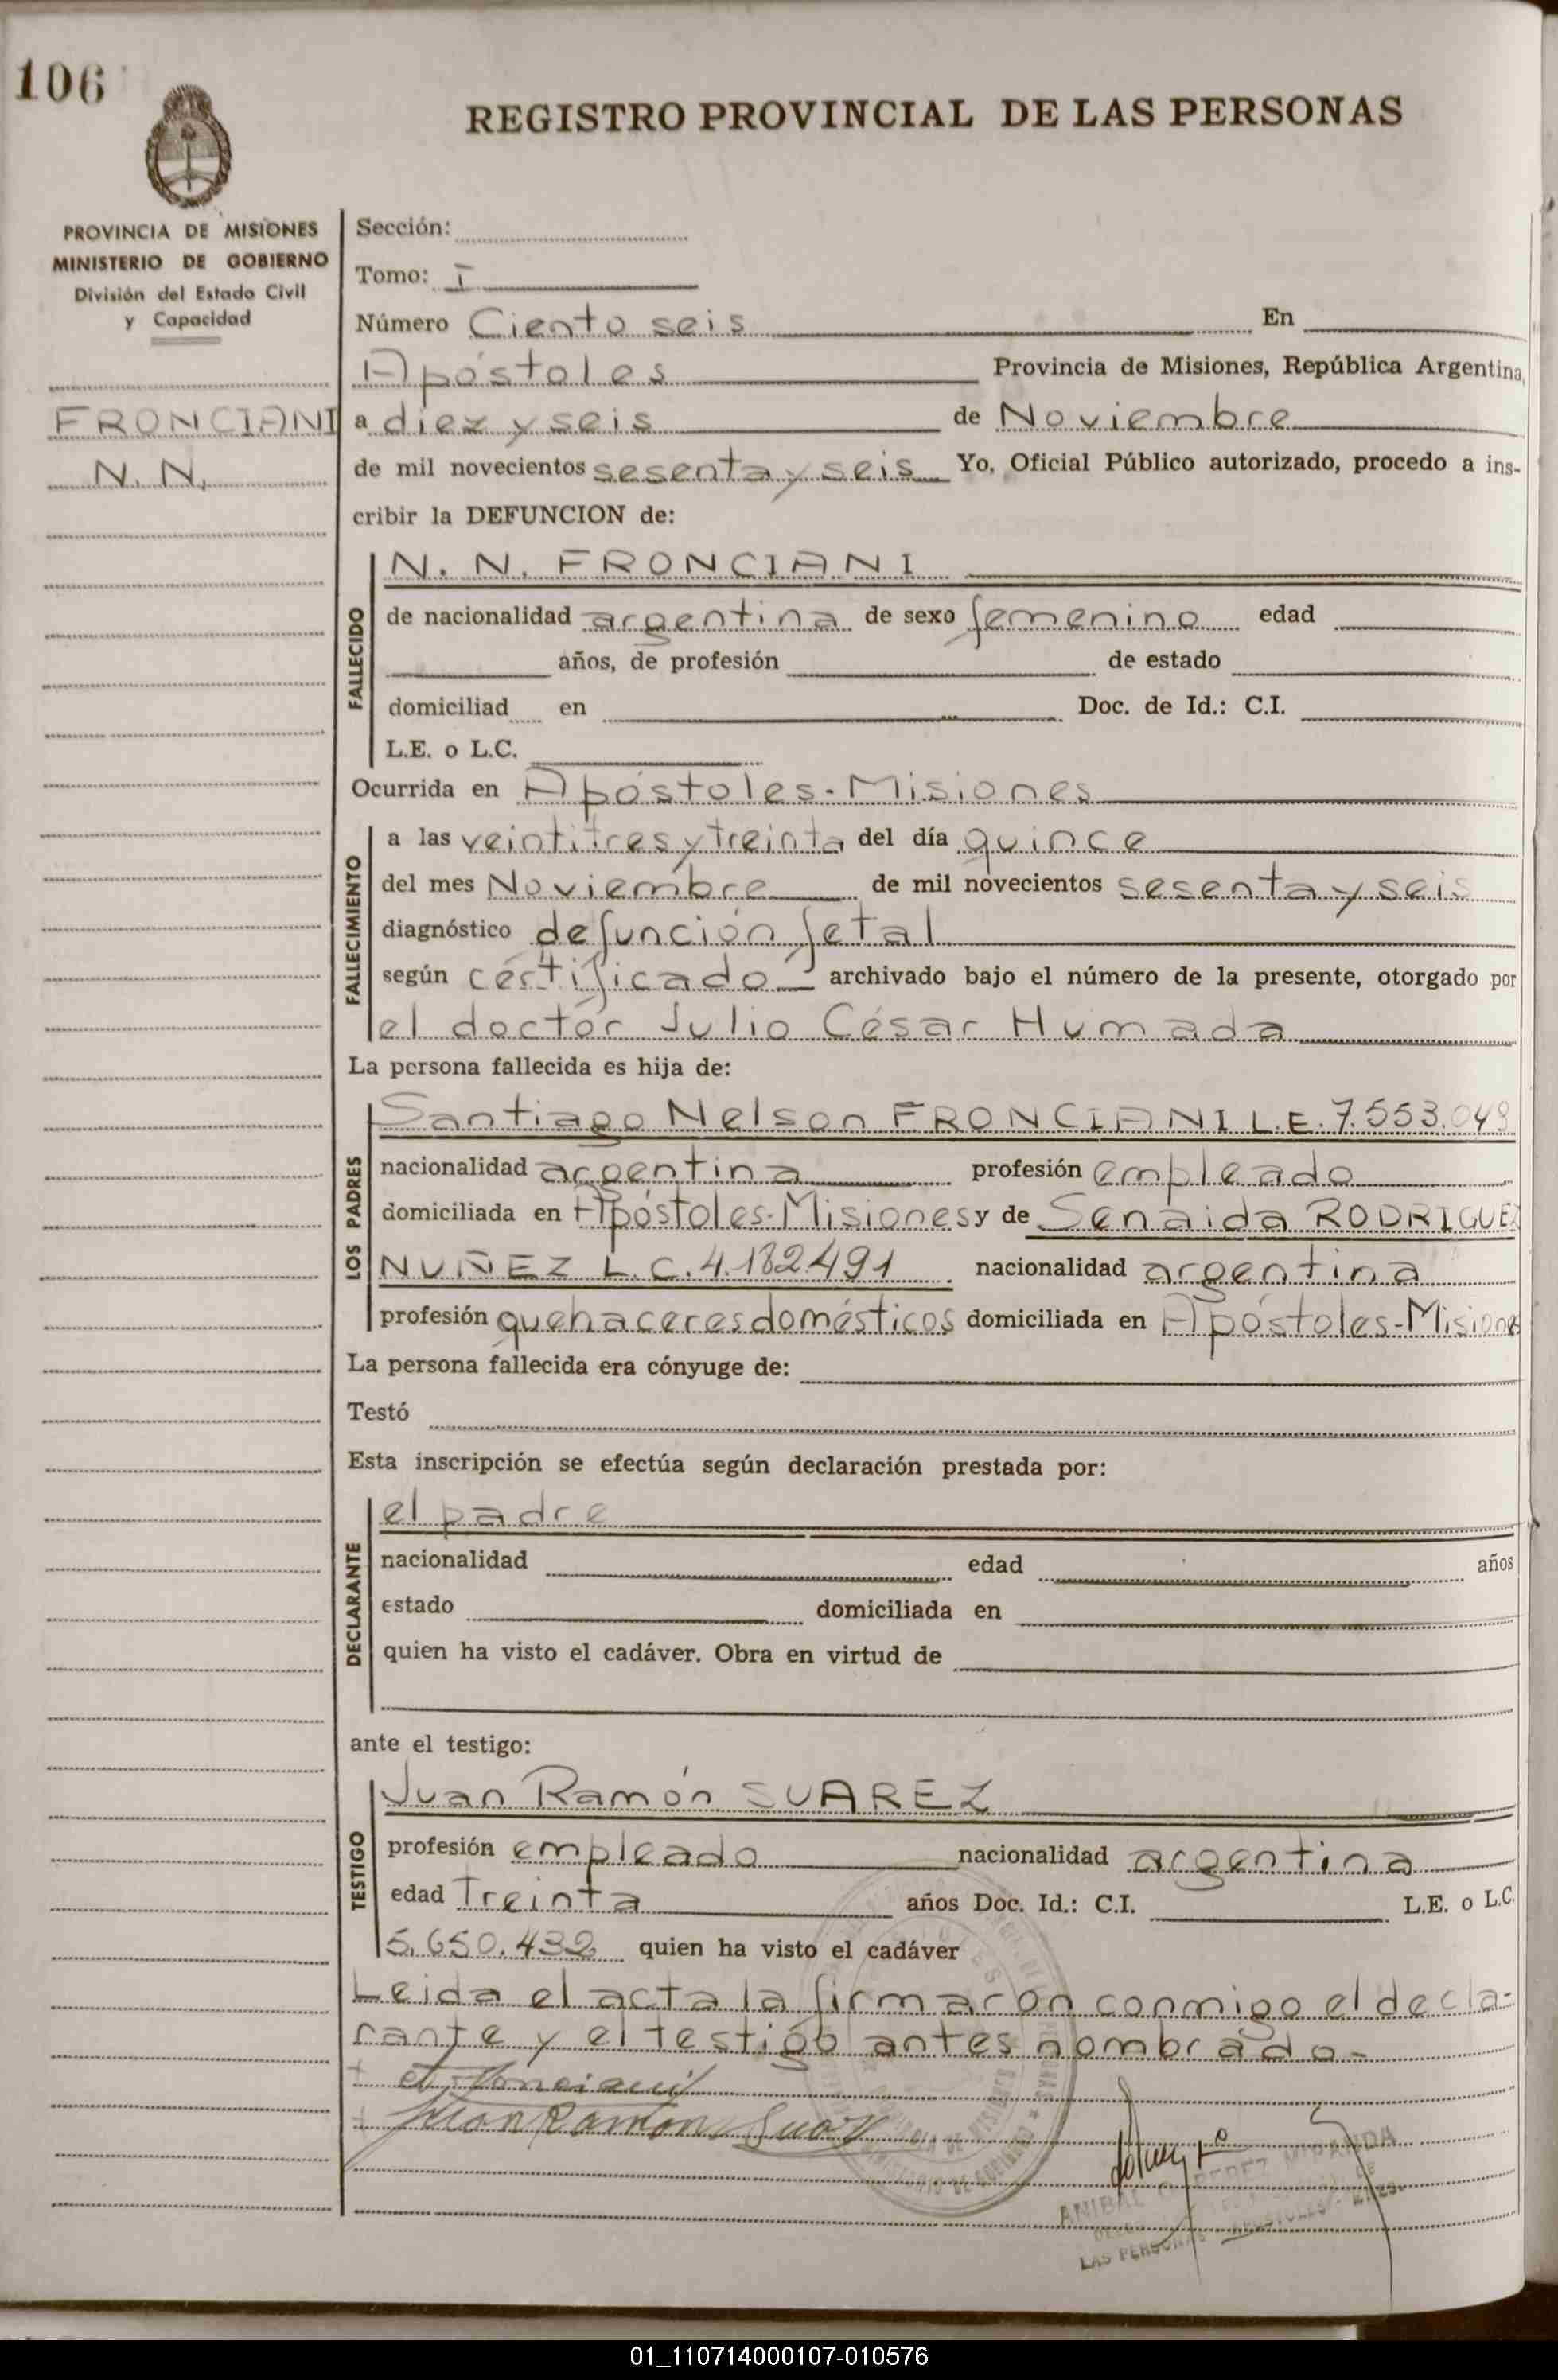 106
REGISTRO PROVINCIAL DE LAS PERSONAS
PROVINCIA DE MISIONES
MINISTERIO DE GOBIERNO
División del Estado Civil
y Capacidad
FRONCIANI
N. N.
Sección:
Tomo: I
Número Ciento seis En
Apóstoles Provincia de Misiones, República Argentina,
a diez y seis de Noviembre
de mil novecientos sesenta y seis Yo, Oficial Público autorizado, procedo a ins-
cribir la DEFUNCION de:
FALLECIDO
N. N. FRONCIANI
de nacionalidad argentina de sexo femenino edad
años, de profesión de estado
domiciliad en Doc. de Id.: C.I.
L.E. o L.C.
Ocurrida en Apóstoles - Misiones
FALLECIMIENTO
a las veintitres y treinta del día quince
del mes Noviembre de mil novecientos sesenta y seis
diagnóstico defunción fetal
según certificado archivado bajo el número de la presente, otorgado por
el doctor Julio César Humada
La persona fallecida es hija de:
LOS PADRES
Santiago Nelson FRONCIANI L.E. 7.553.049
nacionalidad argentina profesión empleado
domiciliada en Apóstoles-Misiones y de Senaida RODRIGUEZ
NUÑEZ L.C. 4.182.491 nacionalidad argentina
profesión quehaceres domésticos domiciliada en Apóstoles-Misiones
La persona fallecida era cónyuge de:
Testó
Esta inscripción se efectúa según declaración prestada por:
DECLARANTE
el padre
nacionalidad edad años
estado domiciliada en
quien ha visto el cadáver. Obra en virtud de
ante el testigo:
TESTIGO
Juan Ramón SUAREZ
profesión empleado nacionalidad argentina
edad Treinta años Doc. Id.: C.I. L.E. o L.C.
5.650.432 quien ha visto el cadáver
Leida el acta la firmaron conmigo el decla-
rante y el testigo antes nombrado-
Juan Ramon Suarez
ANIBAL PEREZ MIRANDA
LAS PERSONAS - APOSTOLES
01_110714000107-010576